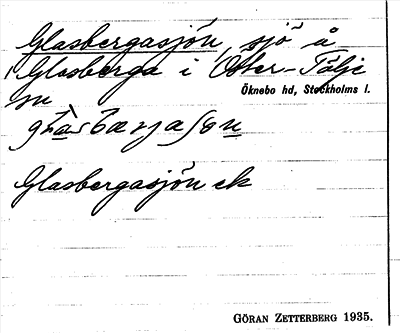 Glasbergasjön, sjö å
Glasberga i Öster-Tälje
sn
Öknebo hd, Stockholms l.
Glasbergasjön ek
GÖRAN ZETTERBERG 1935.